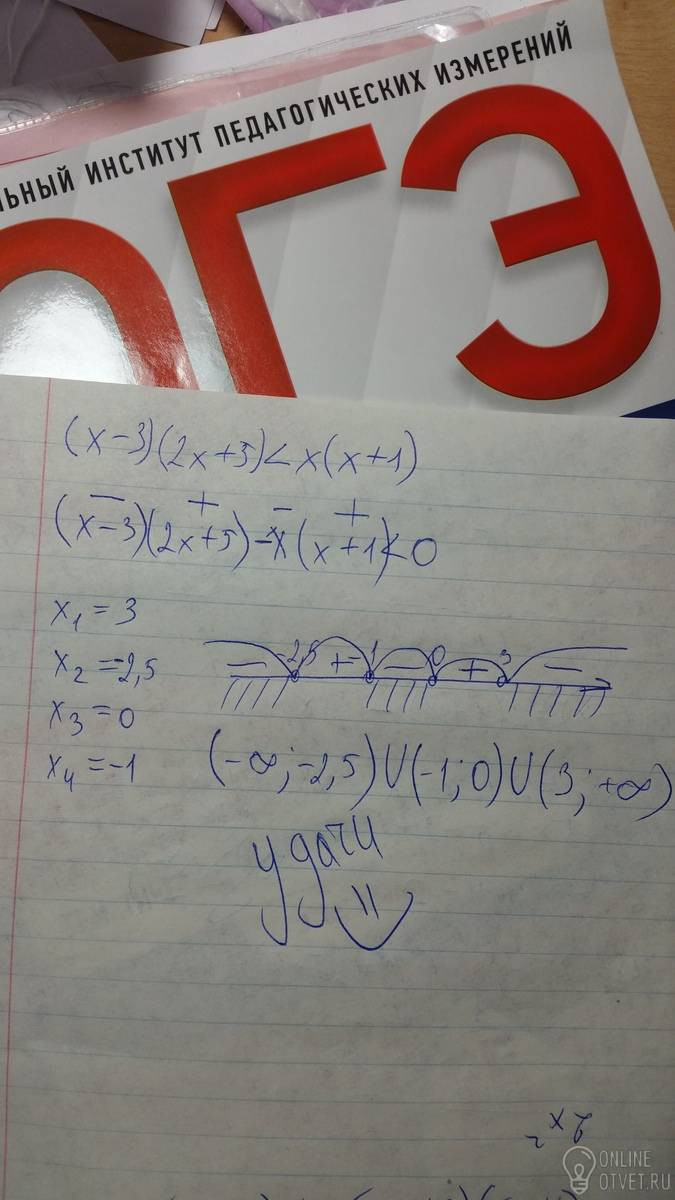 ЛЬНЫЙ ИНСТИТУТ ПЕДАГОГИЧЕСКИХ ИЗМЕРЕНИЙ
ОГЭ
(x-3)(2x+5)<x(x+1)
- + - +
(x-3)(2x+5)-x(x+1)<0
x₁=3
x₂=-2,5
x₃=0
x₄=-1
- -2,5 + -1 - 0 + 3 -
(-∞;-2,5)U(-1;0)U(3;+∞)
удачи
ONLINE
OTVET.RU